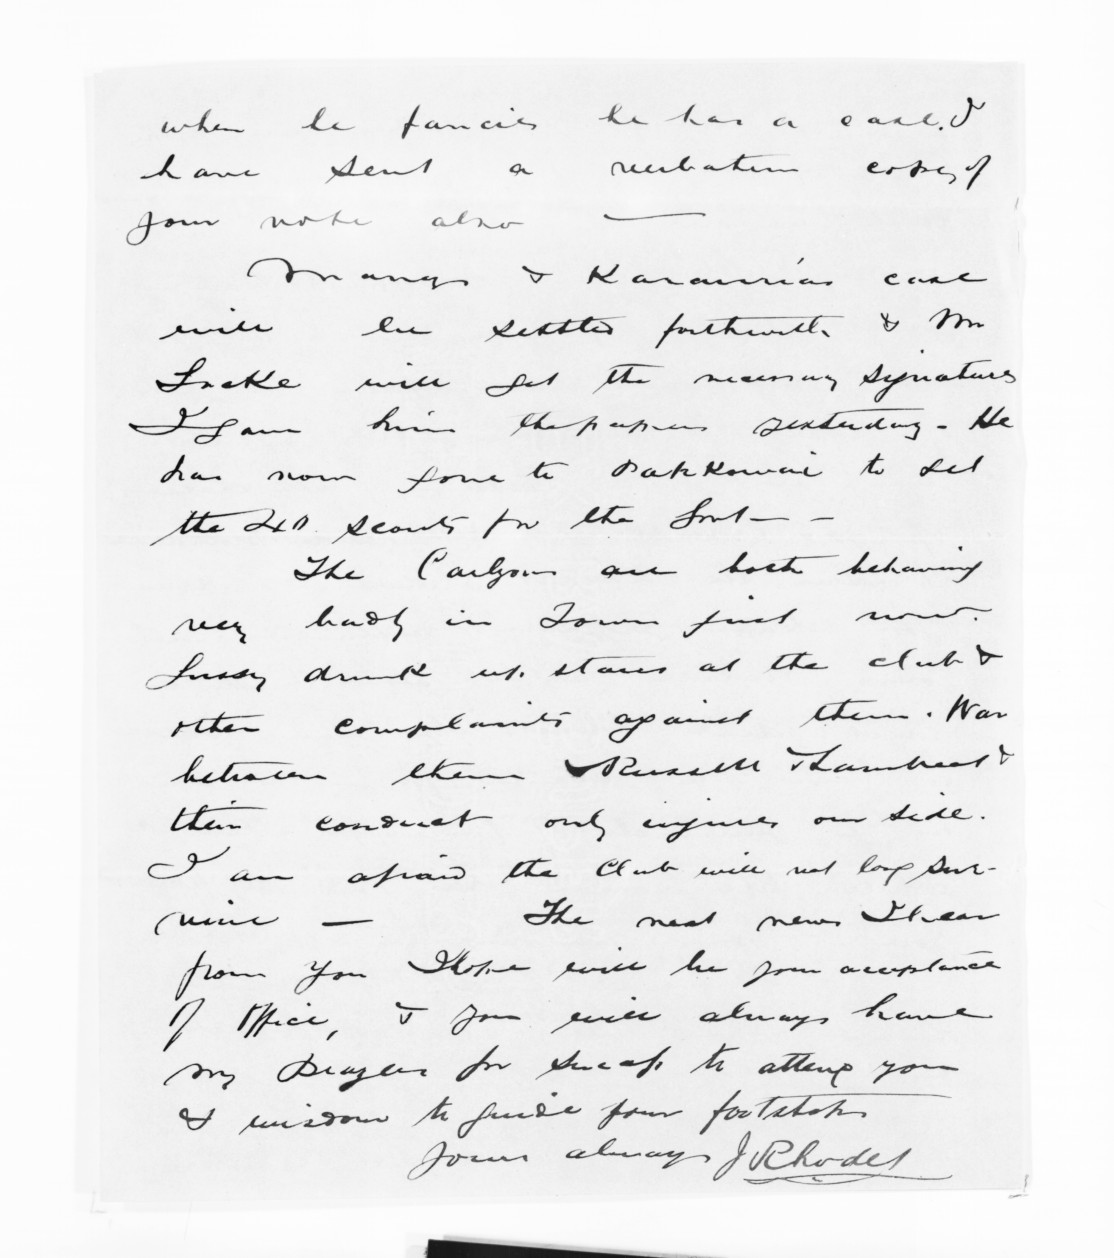 when he fancies he has a case. I
have sent a verbatim copy of
your note also —
Manga & Karauria's case
will be settled forthwith & Mr
Locke will get the necessary signatures
I gave him the papers yesterday - He
has now gone to Pakkowai to get
the scouts for the Govt —
The Carlyons are both behaving
very badly in Town just now.
Gussy drunk up stairs at the club &
other complaints against them. War
between them & Russell & Lambert &
their conduct only injures our side.
I am afraid the Club will not long sur-
vive — The next news I hear
from you I hope will be your acceptance
of Office, & you will always have
my Prayers for success to attend you
& wisdom to guide your footsteps
Yours always J Rhodes